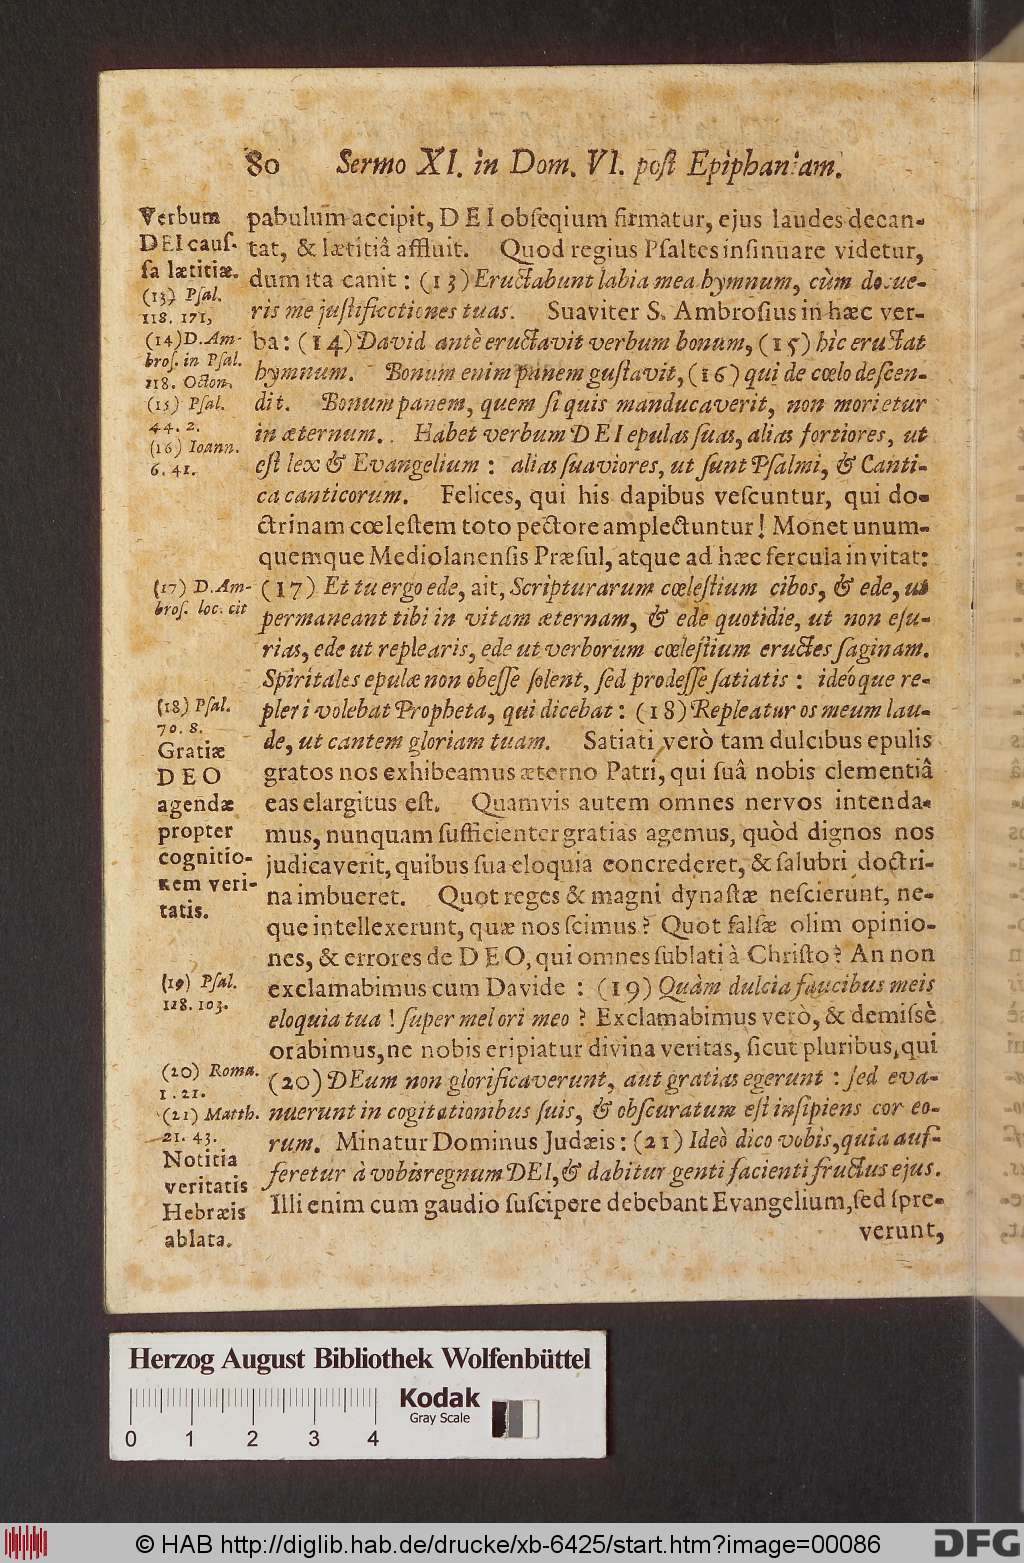 80 Sermo XI. in Dom. VI. poſt Epiphaniam.
Verbum
DEI cauſ-
ſa lætitiæ.
(13) Pſal.
118. 171,
(14) D. Am-
broſ. in Pſal.
118. Octon.
(15) Pſal.
44. 2.
(16) Ioann.
6. 41.
(17) D. Am-
broſ. loc. cit
(18) Pſal.
70. 8.
Gratiæ
DEO
agendæ
propter
cognitio-
nem veri-
tatis.
(19) Pſal.
118. 103.
(20) Roma.
1. 21.
(21) Matth.
21. 43.
Notitia
veritatis
Hebræis
ablata.
pabulum accipit, DEI obſeqium firmatur, ejus laudes decan-
tat, & lætitiâ affluit. Quod regius Pſaltes inſinuare videtur,
dum ita canit : (13) Eructabunt labia mea hymnum, cùm docue-
ris me juſtificctiones tuas. Suaviter S. Ambroſius in hæc ver-
ba: (14) David antè eructavit verbum bonum, (15) hìc eructat
hymnum. Bonum enim panem guſtavit, (16) qui de cœlo deſcen-
dit. Bonum panem, quem ſi quis manducaverit, non morietur
in æternum. Habet verbum DEI epulas ſuas, alias fortiores, ut
eſt lex & Evangelium : alias ſuaviores, ut ſunt Pſalmi, & Canti-
ca canticorum. Felices, qui his dapibus veſcuntur, qui do-
ctrinam cœleſtem toto pectore amplectuntur! Monet unum-
quemque Mediolanenſis Præſul, atque ad hæc fercula invitat:
(17) Et tu ergo ede, ait, Scripturarum cœleſtium cibos, & ede, ut
permaneant tibi in vitam æternam, & ede quotidie, ut non eſu-
rias, ede ut replearis, ede ut verborum cœleſtium eructes ſaginam.
Spiritales epulæ non obeſſe ſolent, ſed prodeſſe ſatiatis : ideóque re-
pleri volebat Propheta, qui dicebat : (18) Repleatur os meum lau-
de, ut cantem gloriam tuam. Satiati verò tam dulcibus epulis
gratos nos exhibeamus æterno Patri, qui ſuâ nobis clementiâ
eas elargitus eſt. Quamvis autem omnes nervos intenda-
mus, nunquam ſufficienter gratias agemus, quòd dignos nos
judicaverit, quibus ſua eloquia concrederet, & ſalubri doctri-
na imbueret. Quot reges & magni dynaſtæ neſcierunt, ne-
que intellexerunt, quæ nos ſcimus? Quot falſæ olim opinio-
nes, & errores de DEO, qui omnes ſublati à Chriſto? An non
exclamabimus cum Davide : (19) Quàm dulcia faucibus meis
eloquia tua ! ſuper mel ori meo ? Exclamabimus verò, & demiſsè
orabimus, ne nobis eripiatur divina veritas, ſicut pluribus, qui
(20) DEum non glorificaverunt, aut gratias egerunt : ſed eva-
nuerunt in cogitationibus ſuis, & obſcuratum eſt inſipiens cor eo-
rum. Minatur Dominus Judæis: (21) Ideò dico vobis, quia auf-
feretur à vobis regnum DEI, & dabitur genti facienti fructus ejus.
Illi enim cum gaudio ſuſcipere debebant Evangelium, ſed ſpre-
verunt,
Herzog August Bibliothek Wolfenbüttel
0 1 2 3 4
Kodak
Gray Scale
© HAB http://diglib.hab.de/drucke/xb-6425/start.htm?image=00086
DFG